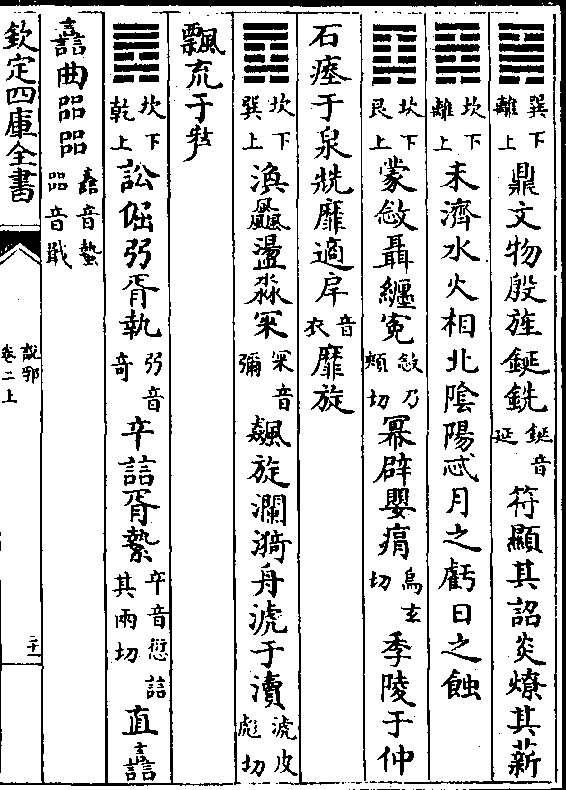 ䷱巽下離上鼎文物殷旌鋋銑鋋音延符顯其詔炎燎其薪
䷿坎下離上未濟水火相北陰陽忒月之虧日之蝕
䷃坎下艮上蒙敜聶纏寃敜乃頰切冪辟嬰痟烏玄切季陵于仲
石瘞于泉兟靡適㡾音衣靡旋
䷺坎下巽上渙飍盪淼冞冞音彌飆旋瀾漪舟淲于瀆淲皮彪切
飄㐬于
䷅坎下乾上訟倔弜胥執弜音奇䇂詰胥縶䇂音愆誩其兩切直譶
譶曲㗊㗊譶音蟄㗊音戢
欽定四庫全書
說郛卷二上
二十一